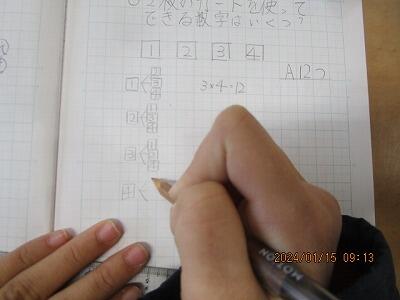 2枚のカードを使って
できる数字はいくつ?
1 2 3 4
A.12つ
1 < 2 3 4
3×4=12
2 < 1 3 4
3 < 1 2 4
4 <
MOTION
2024/01/15 09:13